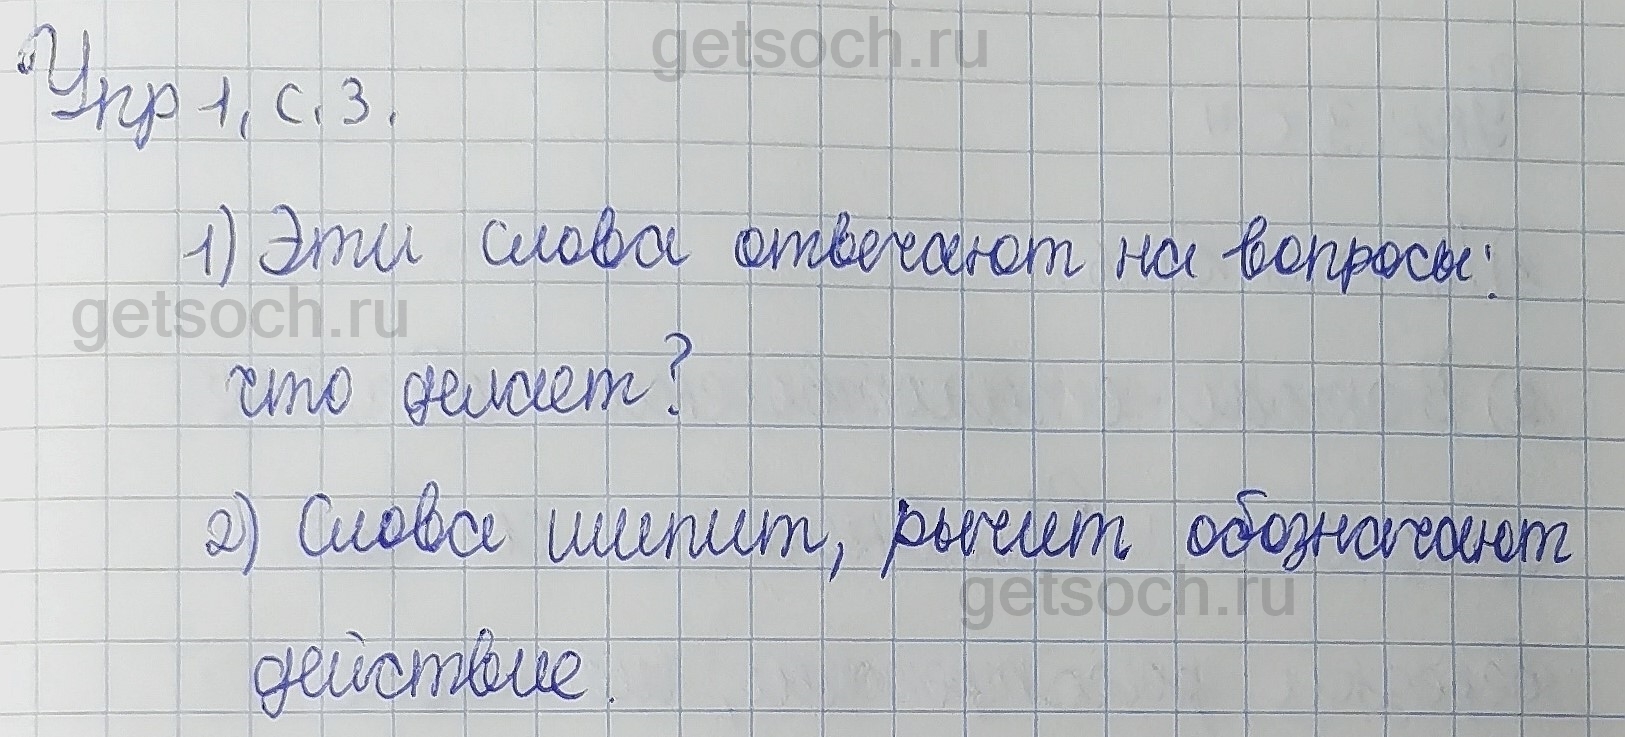 getsoch.ru
Упр 1, с. 3.
1) Эти слова отвечают на вопросы:
getsoch.ru
что делает?
2) Слова шипит, рычит обозначают
getsoch.ru
действие.